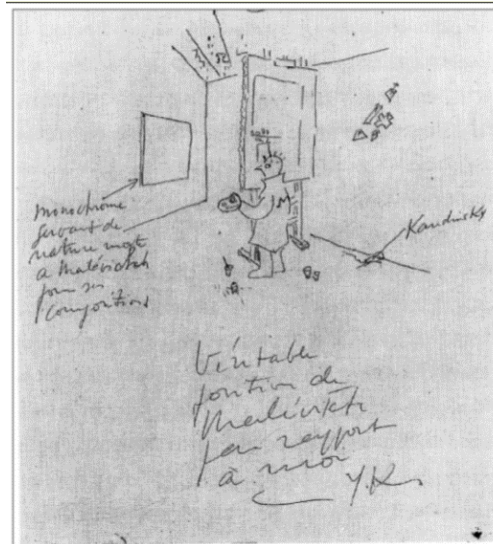 monochrome
servant de
nature morte
à Malévitch
pour ses
compositions
J.M
Kandinsky
Véritable
position de
Malévitch
par rapport
à moi
Y.K.